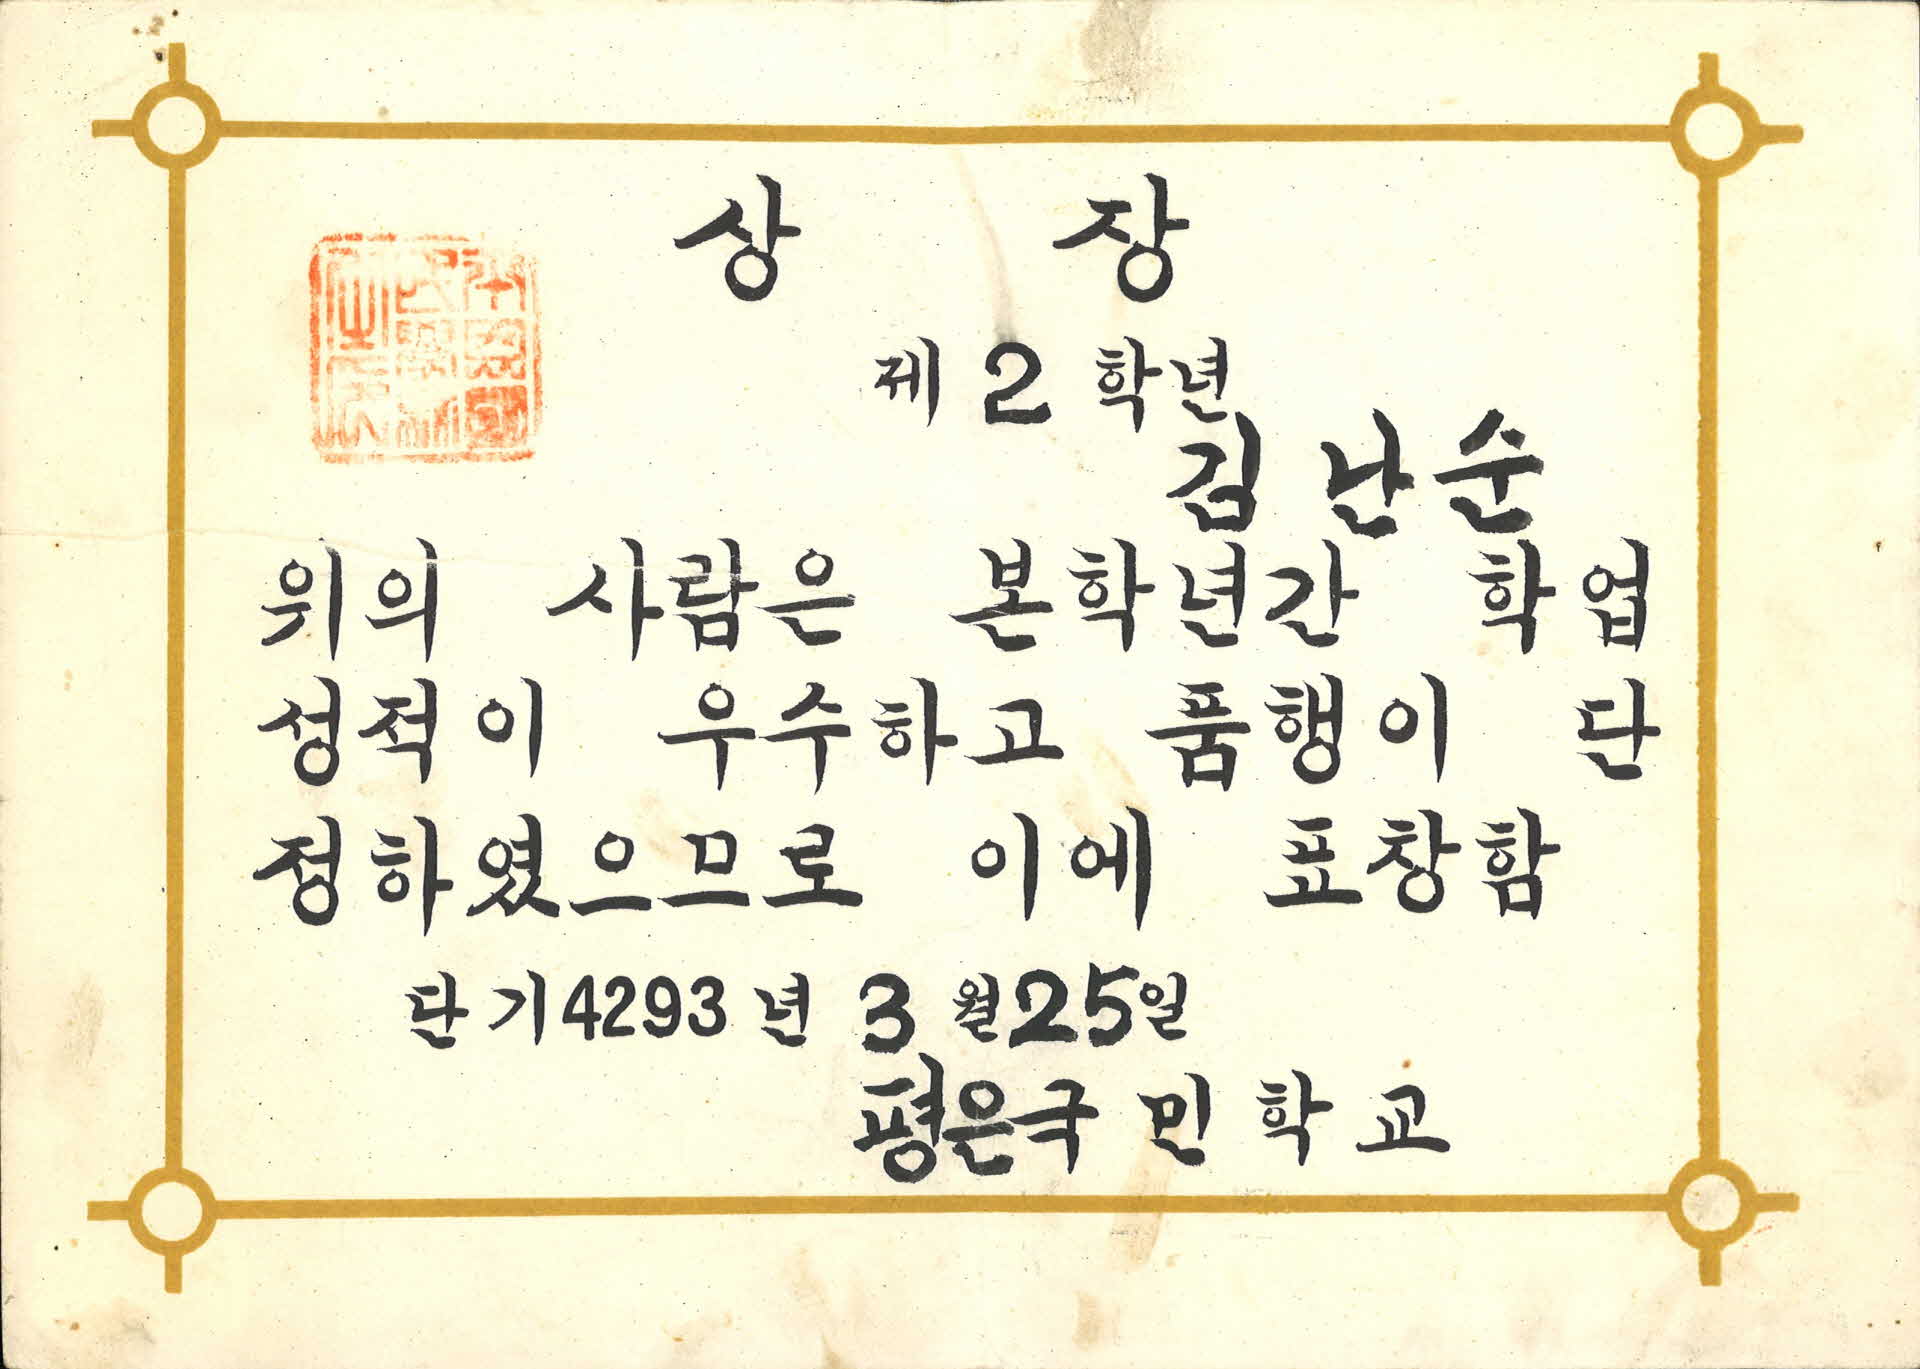 상 장
제 2 학년
김 난순
위의 사람은 본학년간 학업
성적이 우수하고 품행이 단
정하였으므로 이에 표창함
단기 4293 년 3 월 25 일
평은국민학교